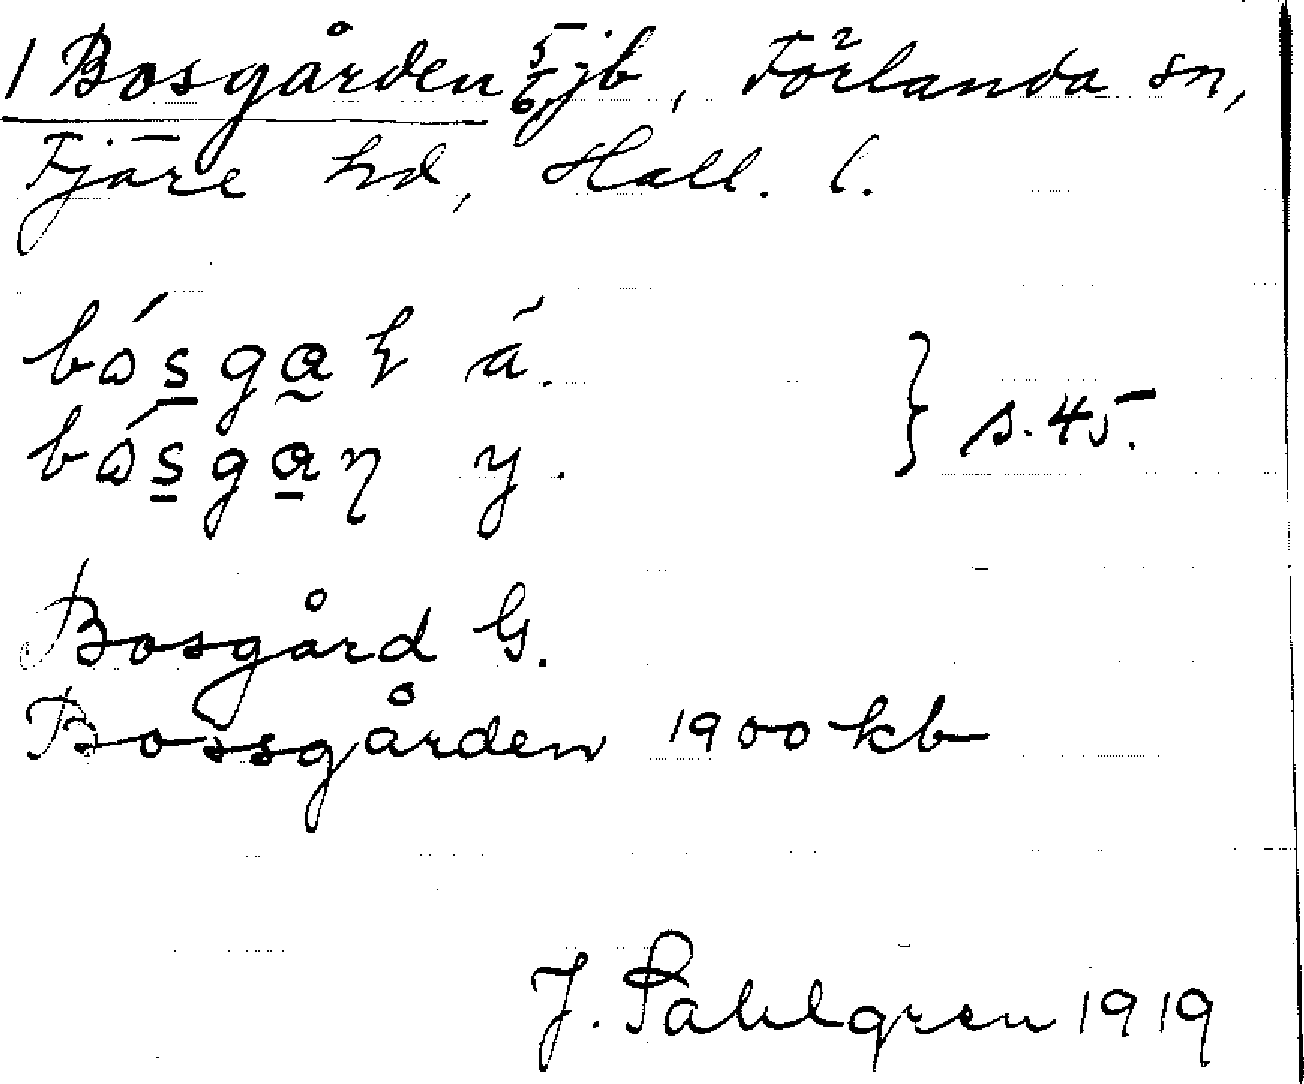 1 Bosgården 5/6 jb, Förlanda sn,
Fjäre hd, Hall. l.
bósga ä.
bósgaη y. } s. 45.
Bosgård G.
Bossgården 1900 kb
J. Sahlgren 1919